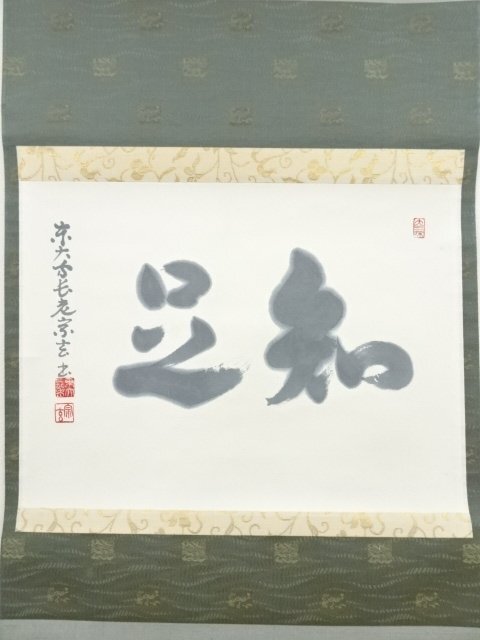 知足
東大寺長老宗玄書